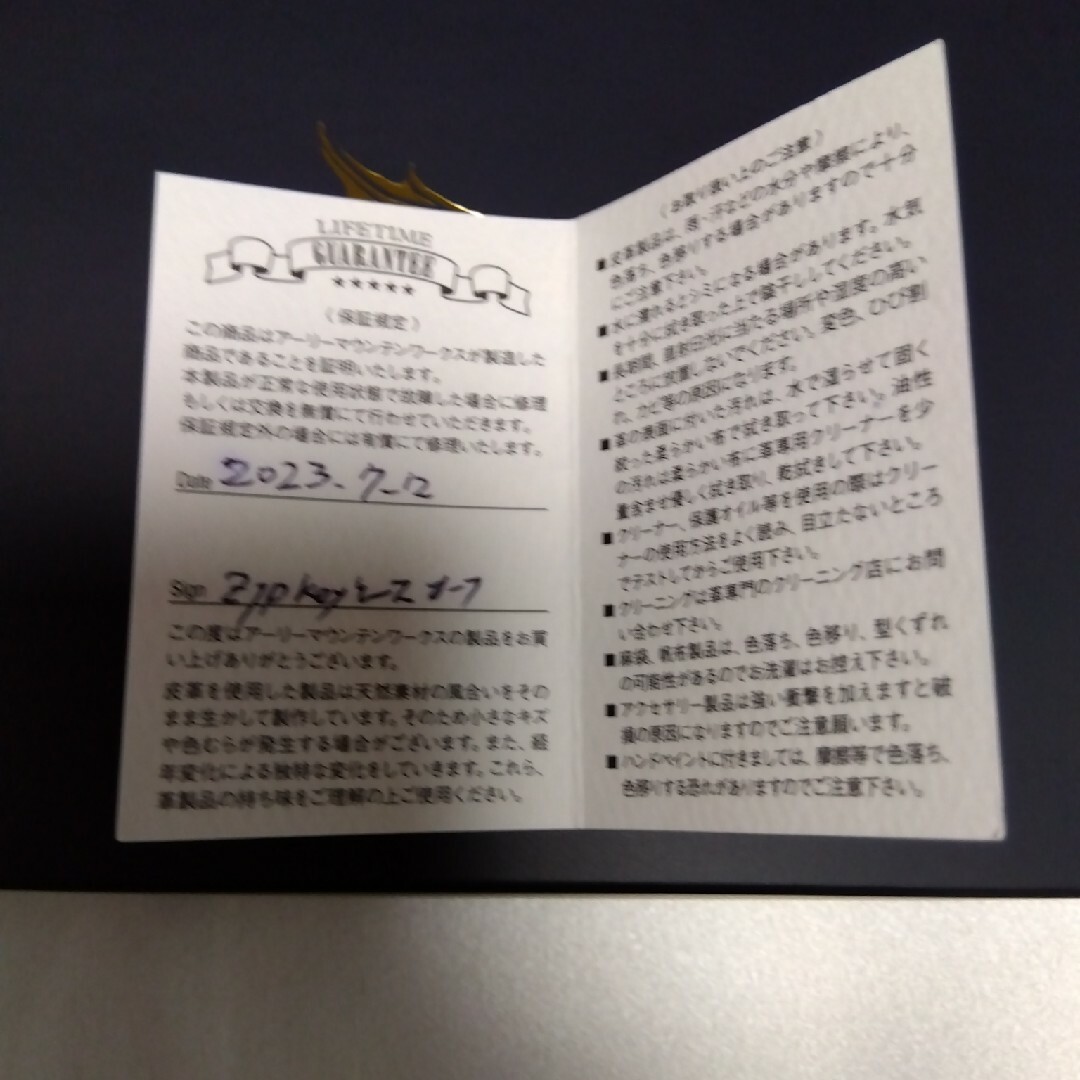 LIFETIME
GUARANTEE
★★★★★
（保証規定）
この商品はアーリーマウンテンワークスが製造した
商品であることを証明いたします。
本製品が正常な使用状態で故障した場合に修理
もしくは交換を無償にて行わせていただきます。
保証規定外の場合には有償にて修理いたします。
Date 2023.7-
Sign Zip key
この度はアーリーマウンテンワークスの製品をお買
い上げありがとうございます。
皮革を使用した製品は天然素材の風合いをその
まま生かして製作しています。そのため小さなキズ
や色むらが発生する場合がございます。また、経
年変化による独特な変化をしていきます。これら、
革製品の持ち味をご理解の上ご使用ください。
（お取り扱い上のご注意）
■皮革製品は、雨・汗などの水分や摩擦により、
色落ち、色移りする場合がありますので十分
にご注意下さい。
■水に濡れるとシミになる場合があります。水気
を十分に拭き取った上で陰干ししてください。
■長時間、直射日光に当たる場所や湿度の高い
ところに放置しないでください。変色、ひび割
れ、カビ等の原因になります。
■革の表面に付いた汚れは、水で湿らせて固く
絞った柔らかい布で拭き取って下さい。油性
の汚れは柔らかい布に革専用クリーナーを少
量含ませ優しく拭き取り、乾拭きして下さい。
■クリーナー、保護オイル等を使用の際はクリー
ナーの使用方法をよく読み、目立たないところ
でテストしてからご使用下さい。
■クリーニングは革専門のクリーニング店にお問
い合わせ下さい。
■麻袋、帆布製品は、色落ち、色移り、型くずれ
の可能性があるのでお洗濯はお控え下さい。
■アクセサリー製品は強い衝撃を加えますと破
損の原因になりますのでご注意願います。
■ハンドペイントに付きましては、摩擦等で色落ち、
色移りする恐れがありますのでご注意下さい。